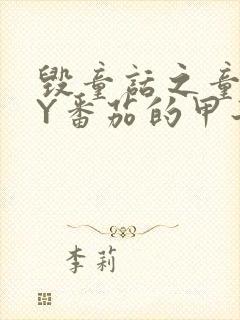 毁童话之童
Y番茄的甲
李莉